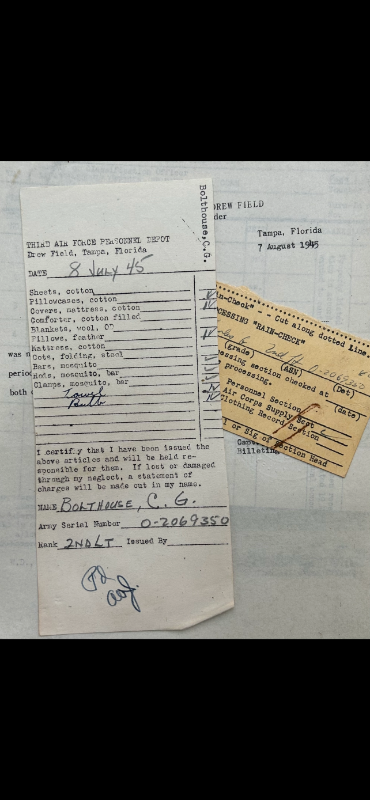 Bolthouse, C.G.
THIRD AIR FORCE PERSONNEL DEPOT
Drew Field, Tampa, Florida
DATE 8 JULY 45
Sheets, cotton
Pillowcases, cotton
Covers, mattress, cotton
Comforter, cotton filled
Blankets, wool, OD
Pillows, feather
Mattress, cotton
Cots, folding, steel
Bars, mosquito
Rods, mosquito, bar
Clamps, mosquito, bar
Towel
Bulb
I certify that I have been issued the
above articles and will be held re-
sponsible for them. If lost or damaged
through my neglect, a statement of
charges will be made out in my name.
NAME BOLTHOUSE, C. G.
Army Serial Number O-2069350
Rank 2ND LT Issued By
DREW FIELD
Tampa, Florida
7 August 1945
in-Check" - Cut along dotted line.
CESSING "RAIN-CHECK"
2nd Lt
(grade) (ASN) (Det)
essing section checked at
processing. (date)
Personnel Section
Air Corps Supply Sect
Clothing Record Section
l or Sig of Section Head
Billeting
was
period
both